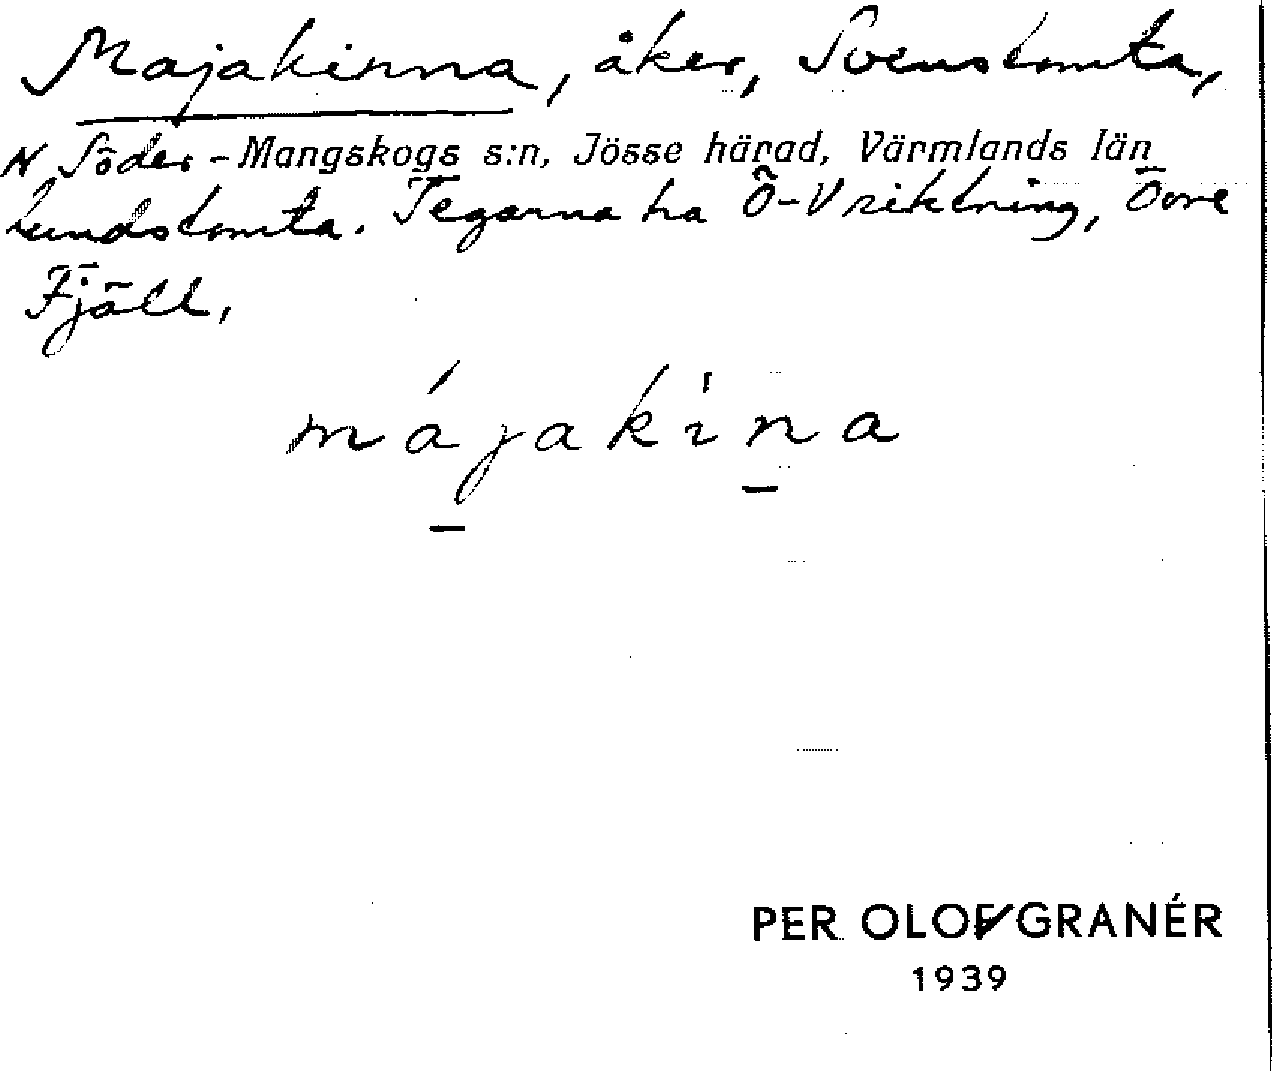 Majakinna, åker, Svenstomta,
N Söder-Mangskogs s:n, Jösse härad, Värmlands län
Lundstomta. Tegarna ha Ö-V riktning, Övre
Fjäll,
májakìna
PER OLOF GRANÉR
1939